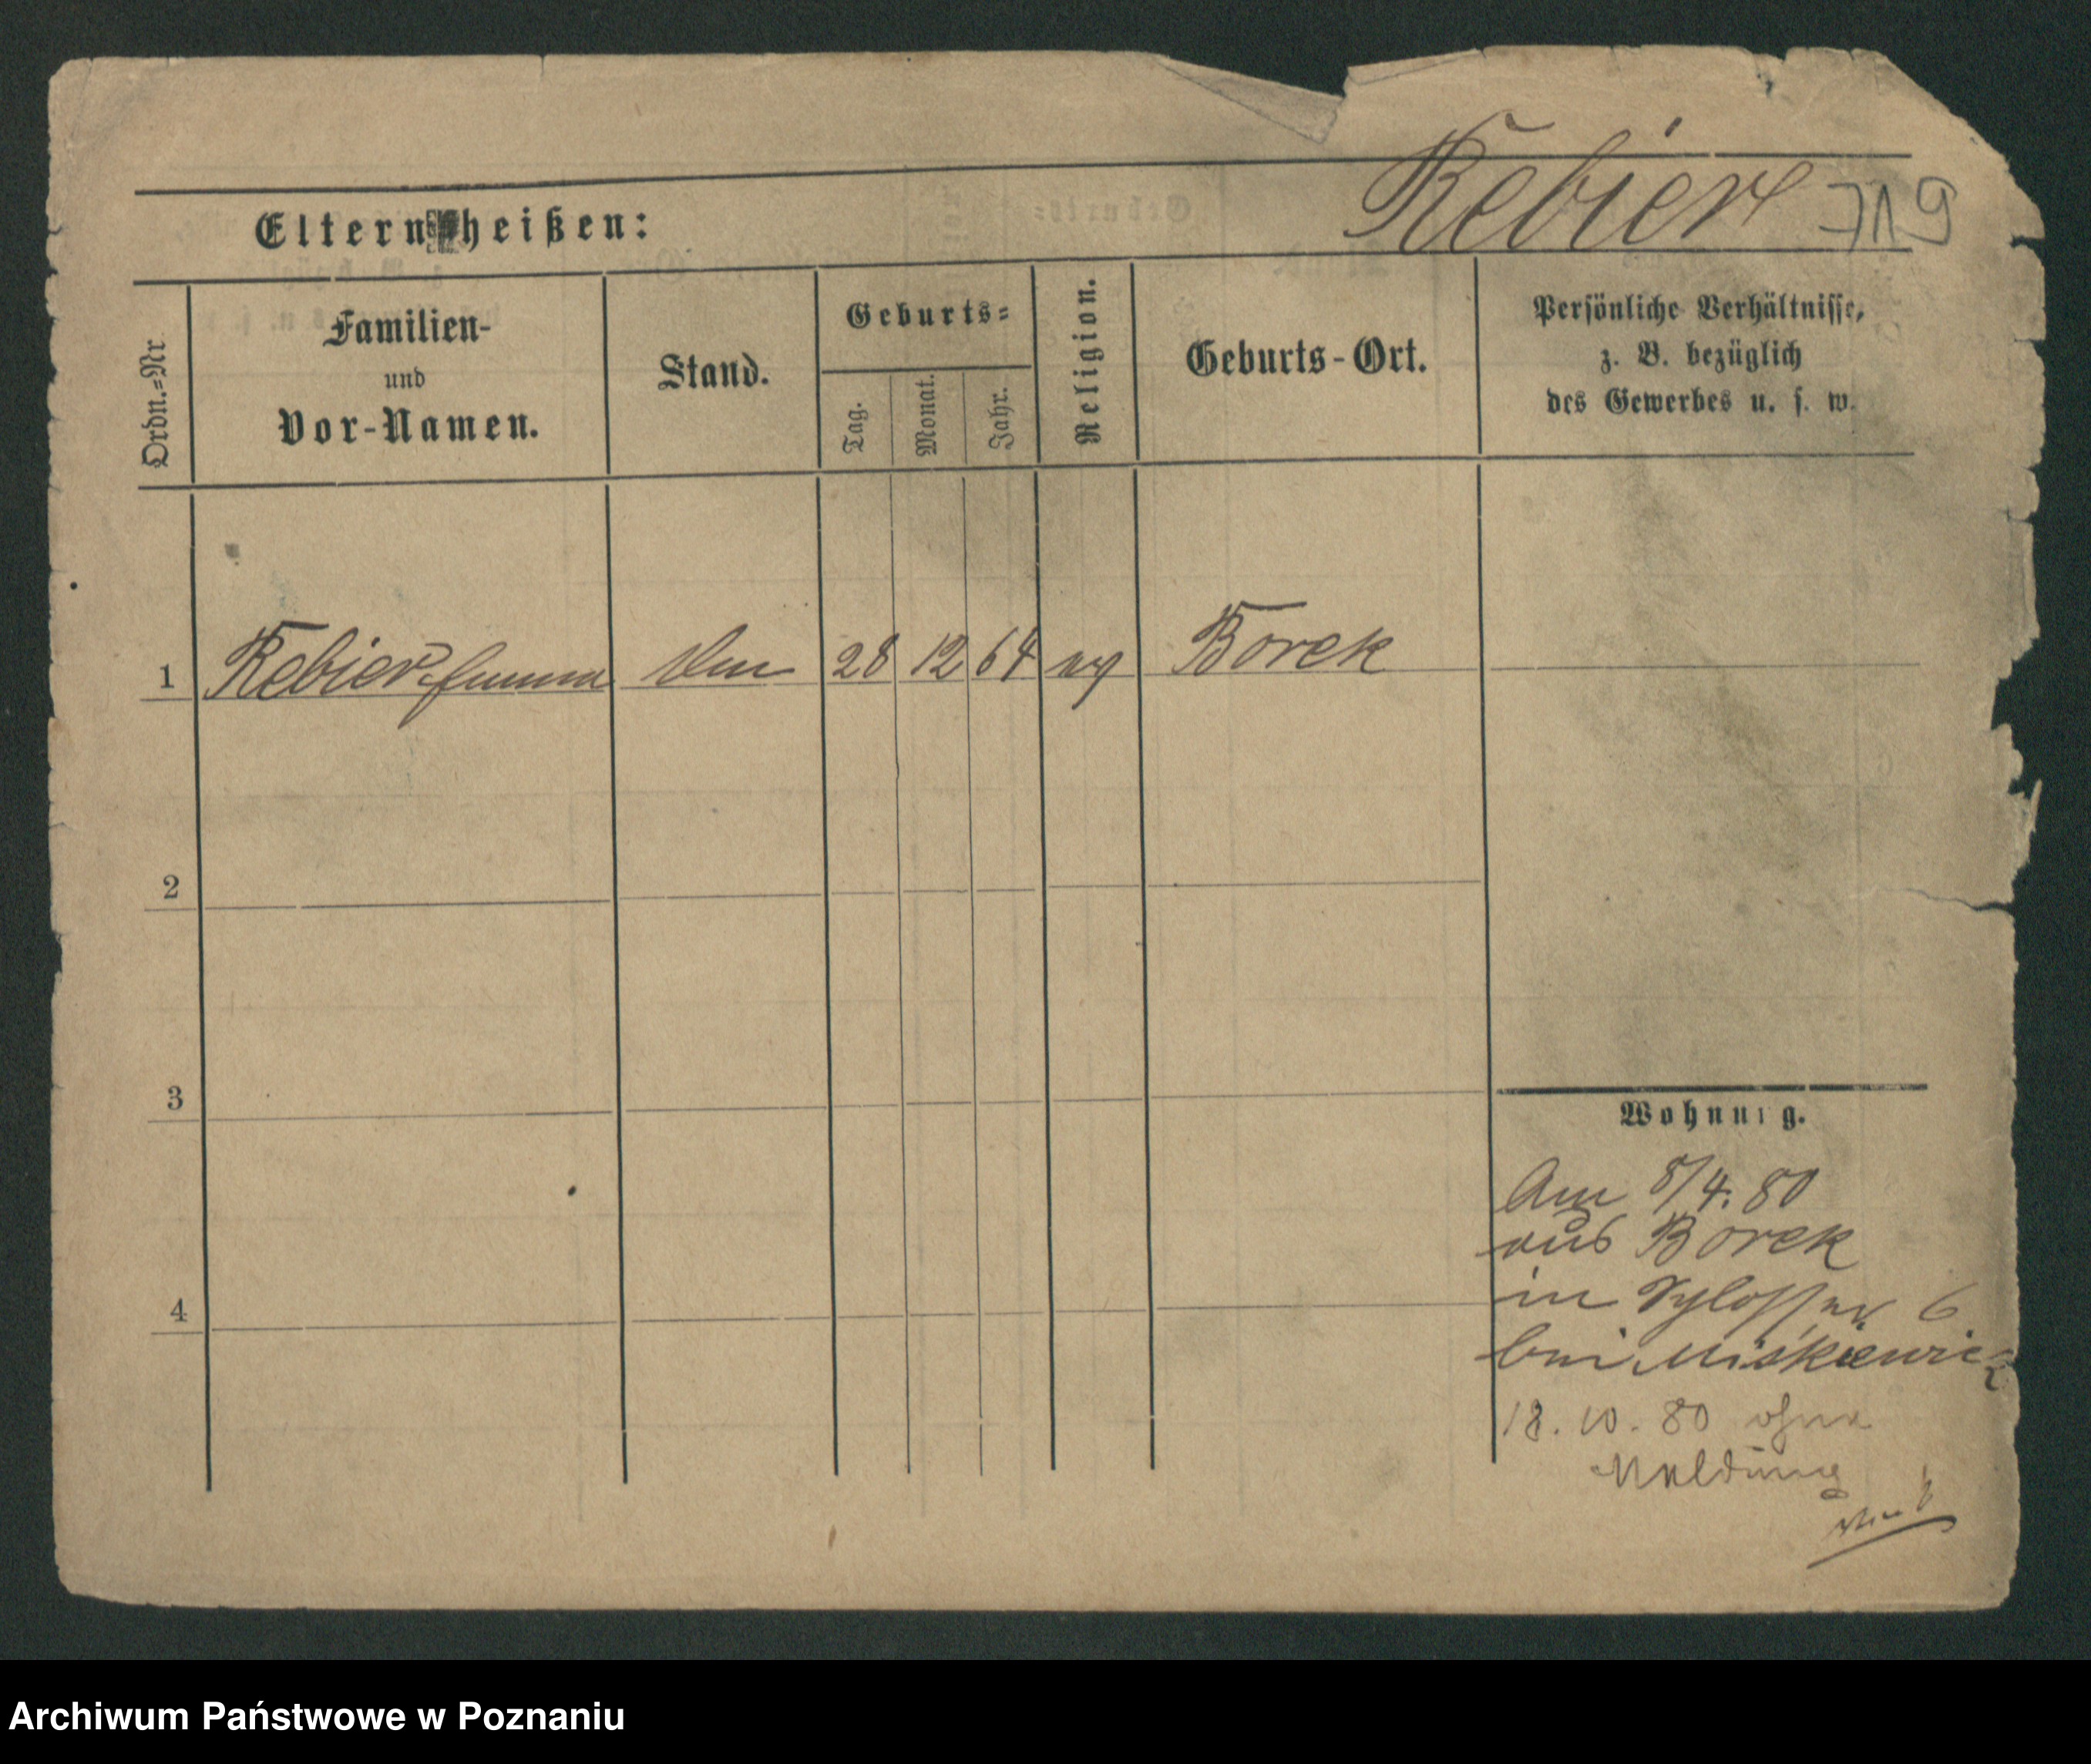 Rebier 719
Eltern heißen:
Ordn.=Nr
Familien-
und
Vor-Namen.
Stand.
Geburts=
Tag.
Monat.
Jahr.
Religion.
Geburts-Ort.
Persönliche Verhältnisse,
z. B. bezüglich
des Gewerbes u. s. w.
1 Rebier Emma 28 12 64 Borek
2
3
4
Wohnung.
Am 8/4. 80
aus Borek
in 6
bei Miśkiewicz
18. 10. 80 ohne
Meldung
Archiwum Państwowe w Poznaniu